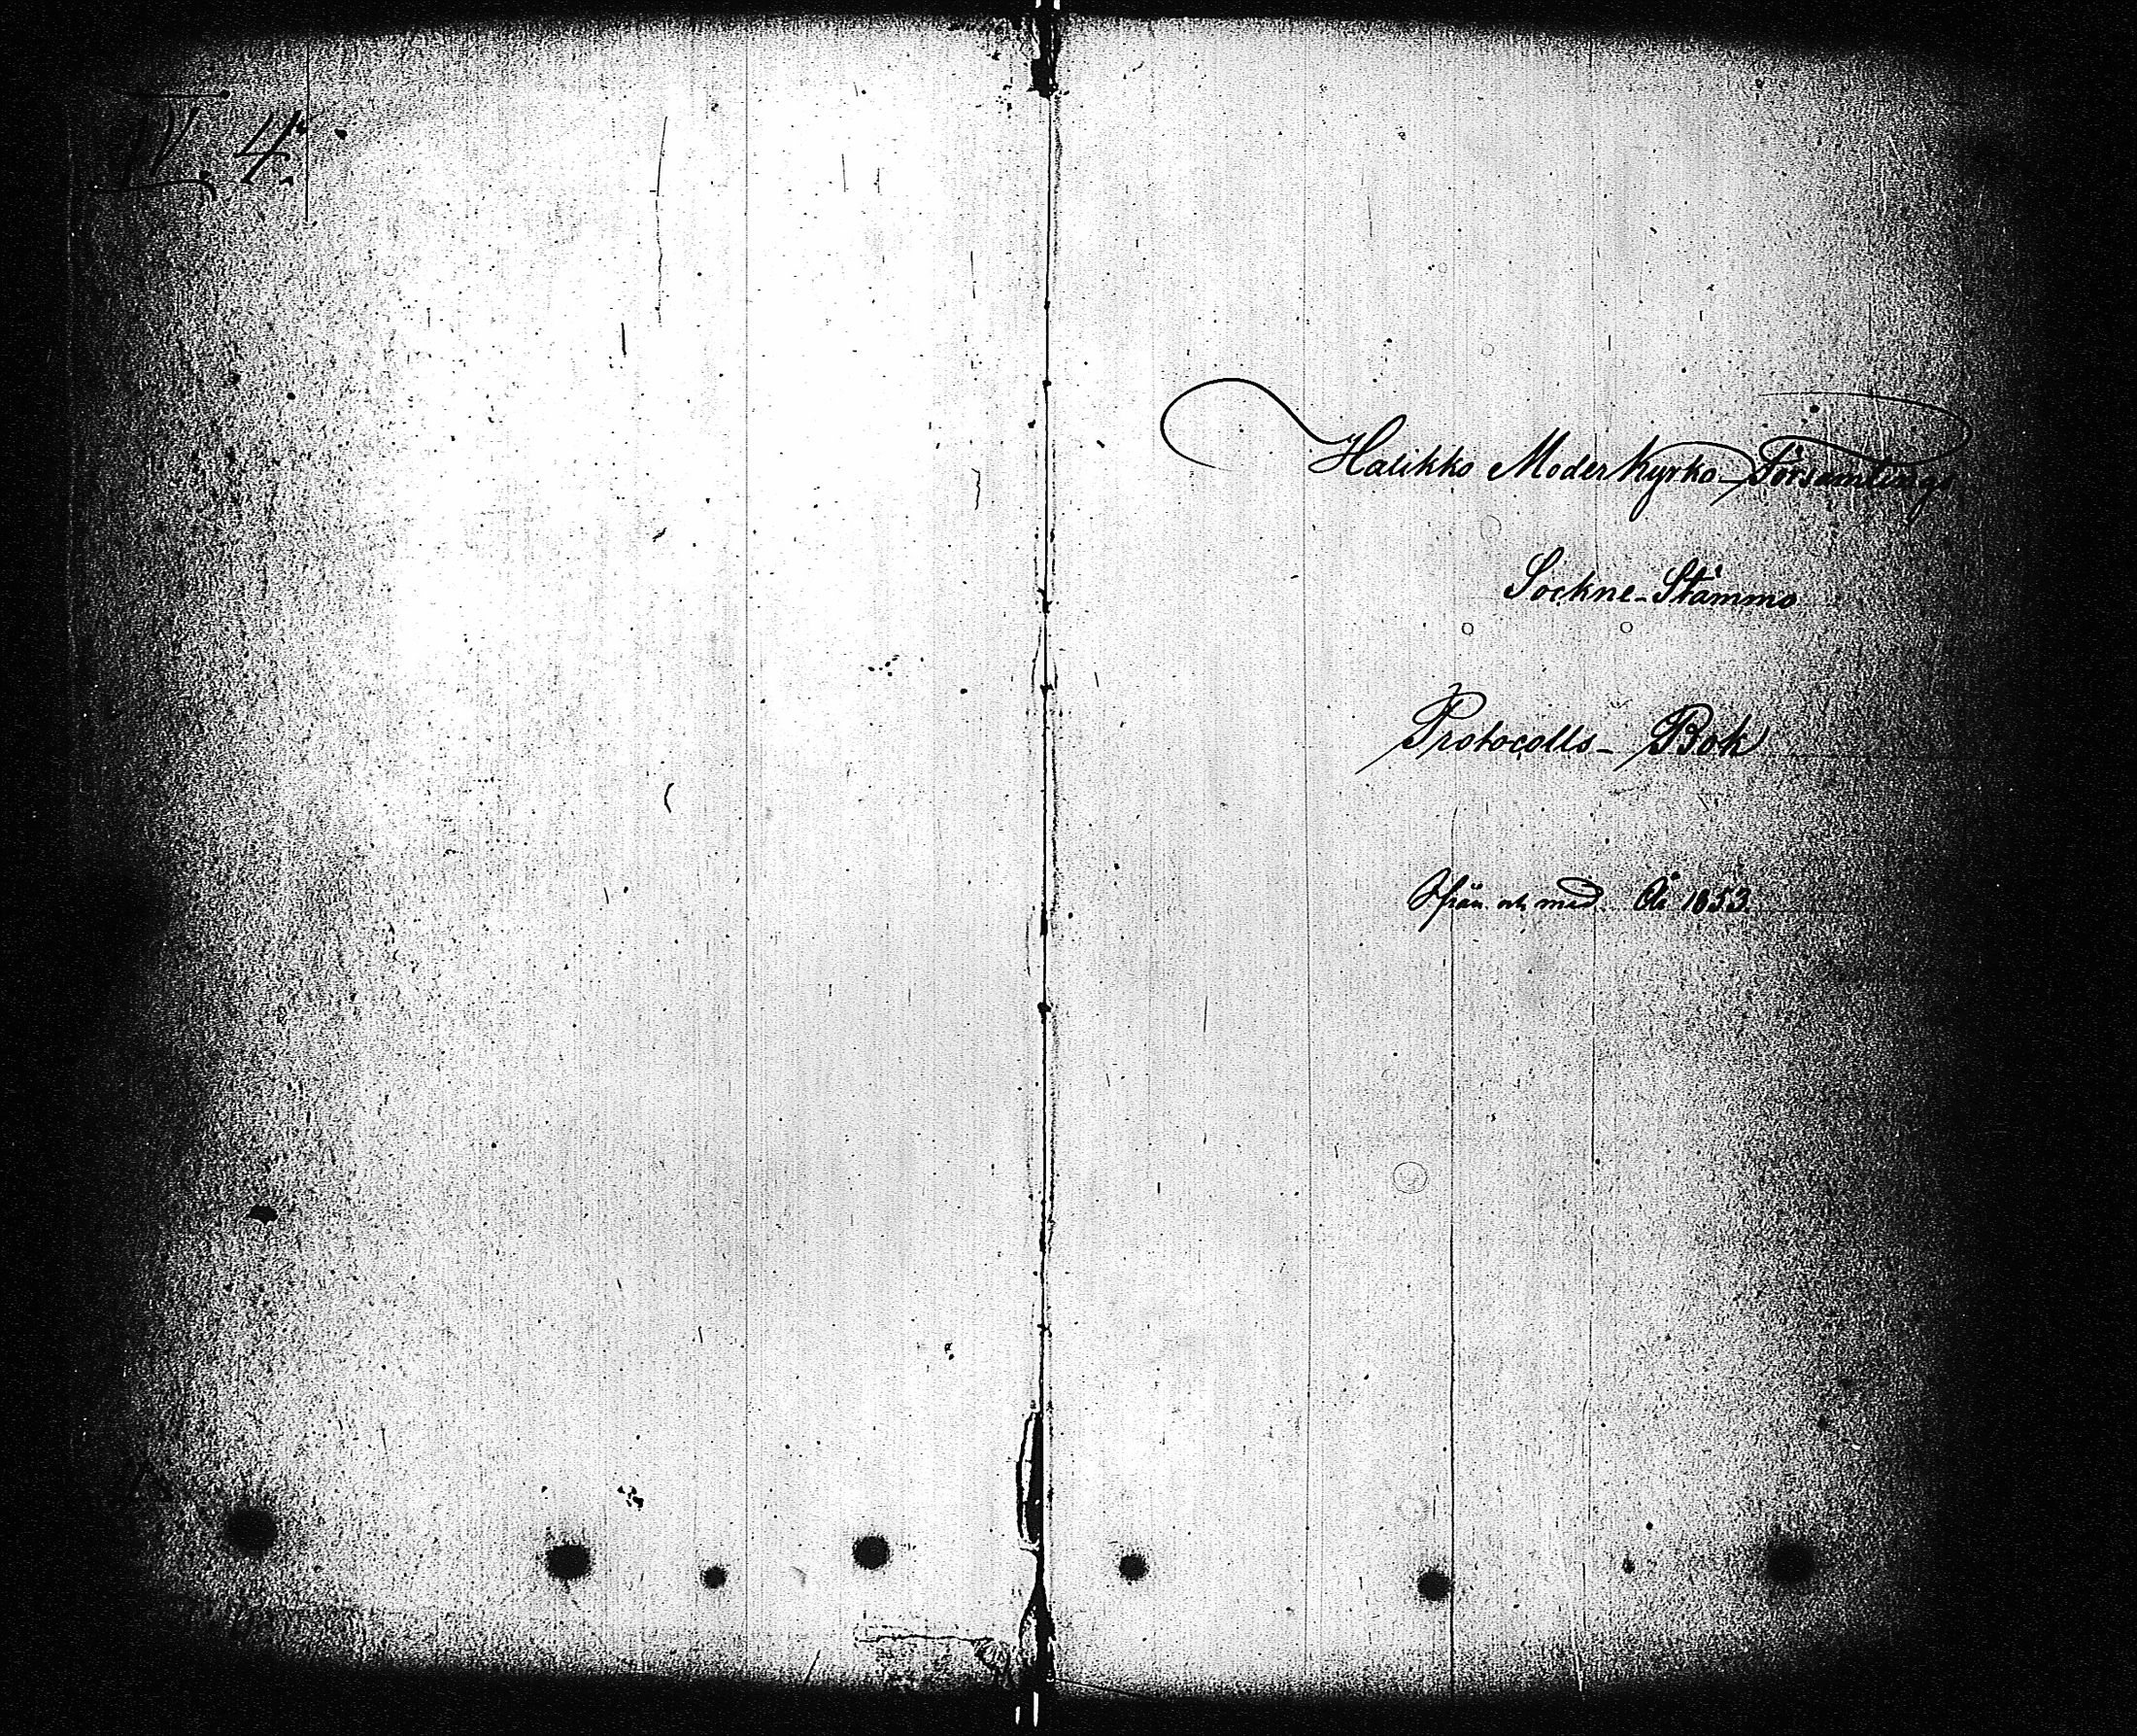 IV. 4.
Halikko Moderkyrko-Församlings
Sockne-Stämmo
Protocolls-Bok
Ifrån och med År 1853.